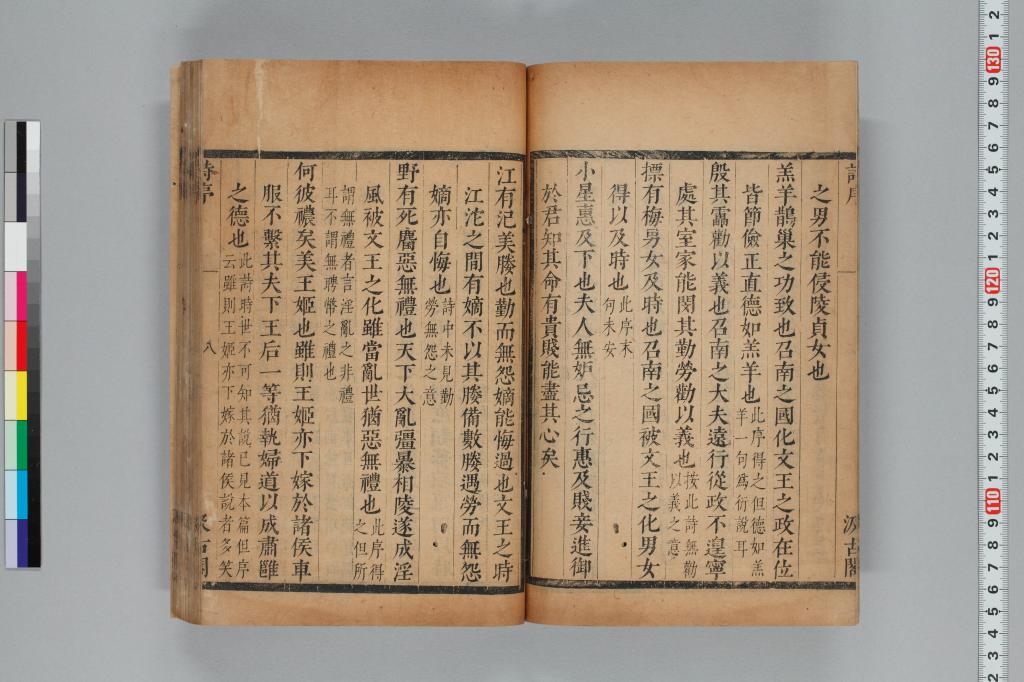 之男不能侵陵貞女也
羔羊鵲巢之功致也召南之國化文王之政在位
皆節儉正直德如羔羊也此序得之但德如羔
羊一句爲衍說耳
殷其靁勸以義也召南之大夫遠行從政不遑寧
處其室家能閔其勤勞勸以義也按此詩無勸
以義之意
摽有梅男女及時也召南之國被文王之化男女
得以及時也此序末
句未安
小星惠及下也夫人無妒忌之行惠及賤妾進御
於君知其命有貴賤能盡其心矣
江有汜美媵也勤而無怨嫡能悔過也文王之時
江沱之間有嫡不以其媵備數媵遇勞而無怨
嫡亦自悔也詩中未見勤
勞無怨之意
野有死麕惡無禮也天下大亂彊暴相陵遂成淫
風被文王之化雖當亂世猶惡無禮也此序得
之但所
謂無禮者言淫亂之非禮
耳不謂無聘幣之禮也
何彼襛矣美王姬也雖則王姬亦下嫁於諸侯車
服不繫其夫下王后一等猶執婦道以成肅雝
之德也此詩時世不可知其說已見本篇但序
云雖則王姬亦下嫁於諸侯說者多笑
八
汲古閣